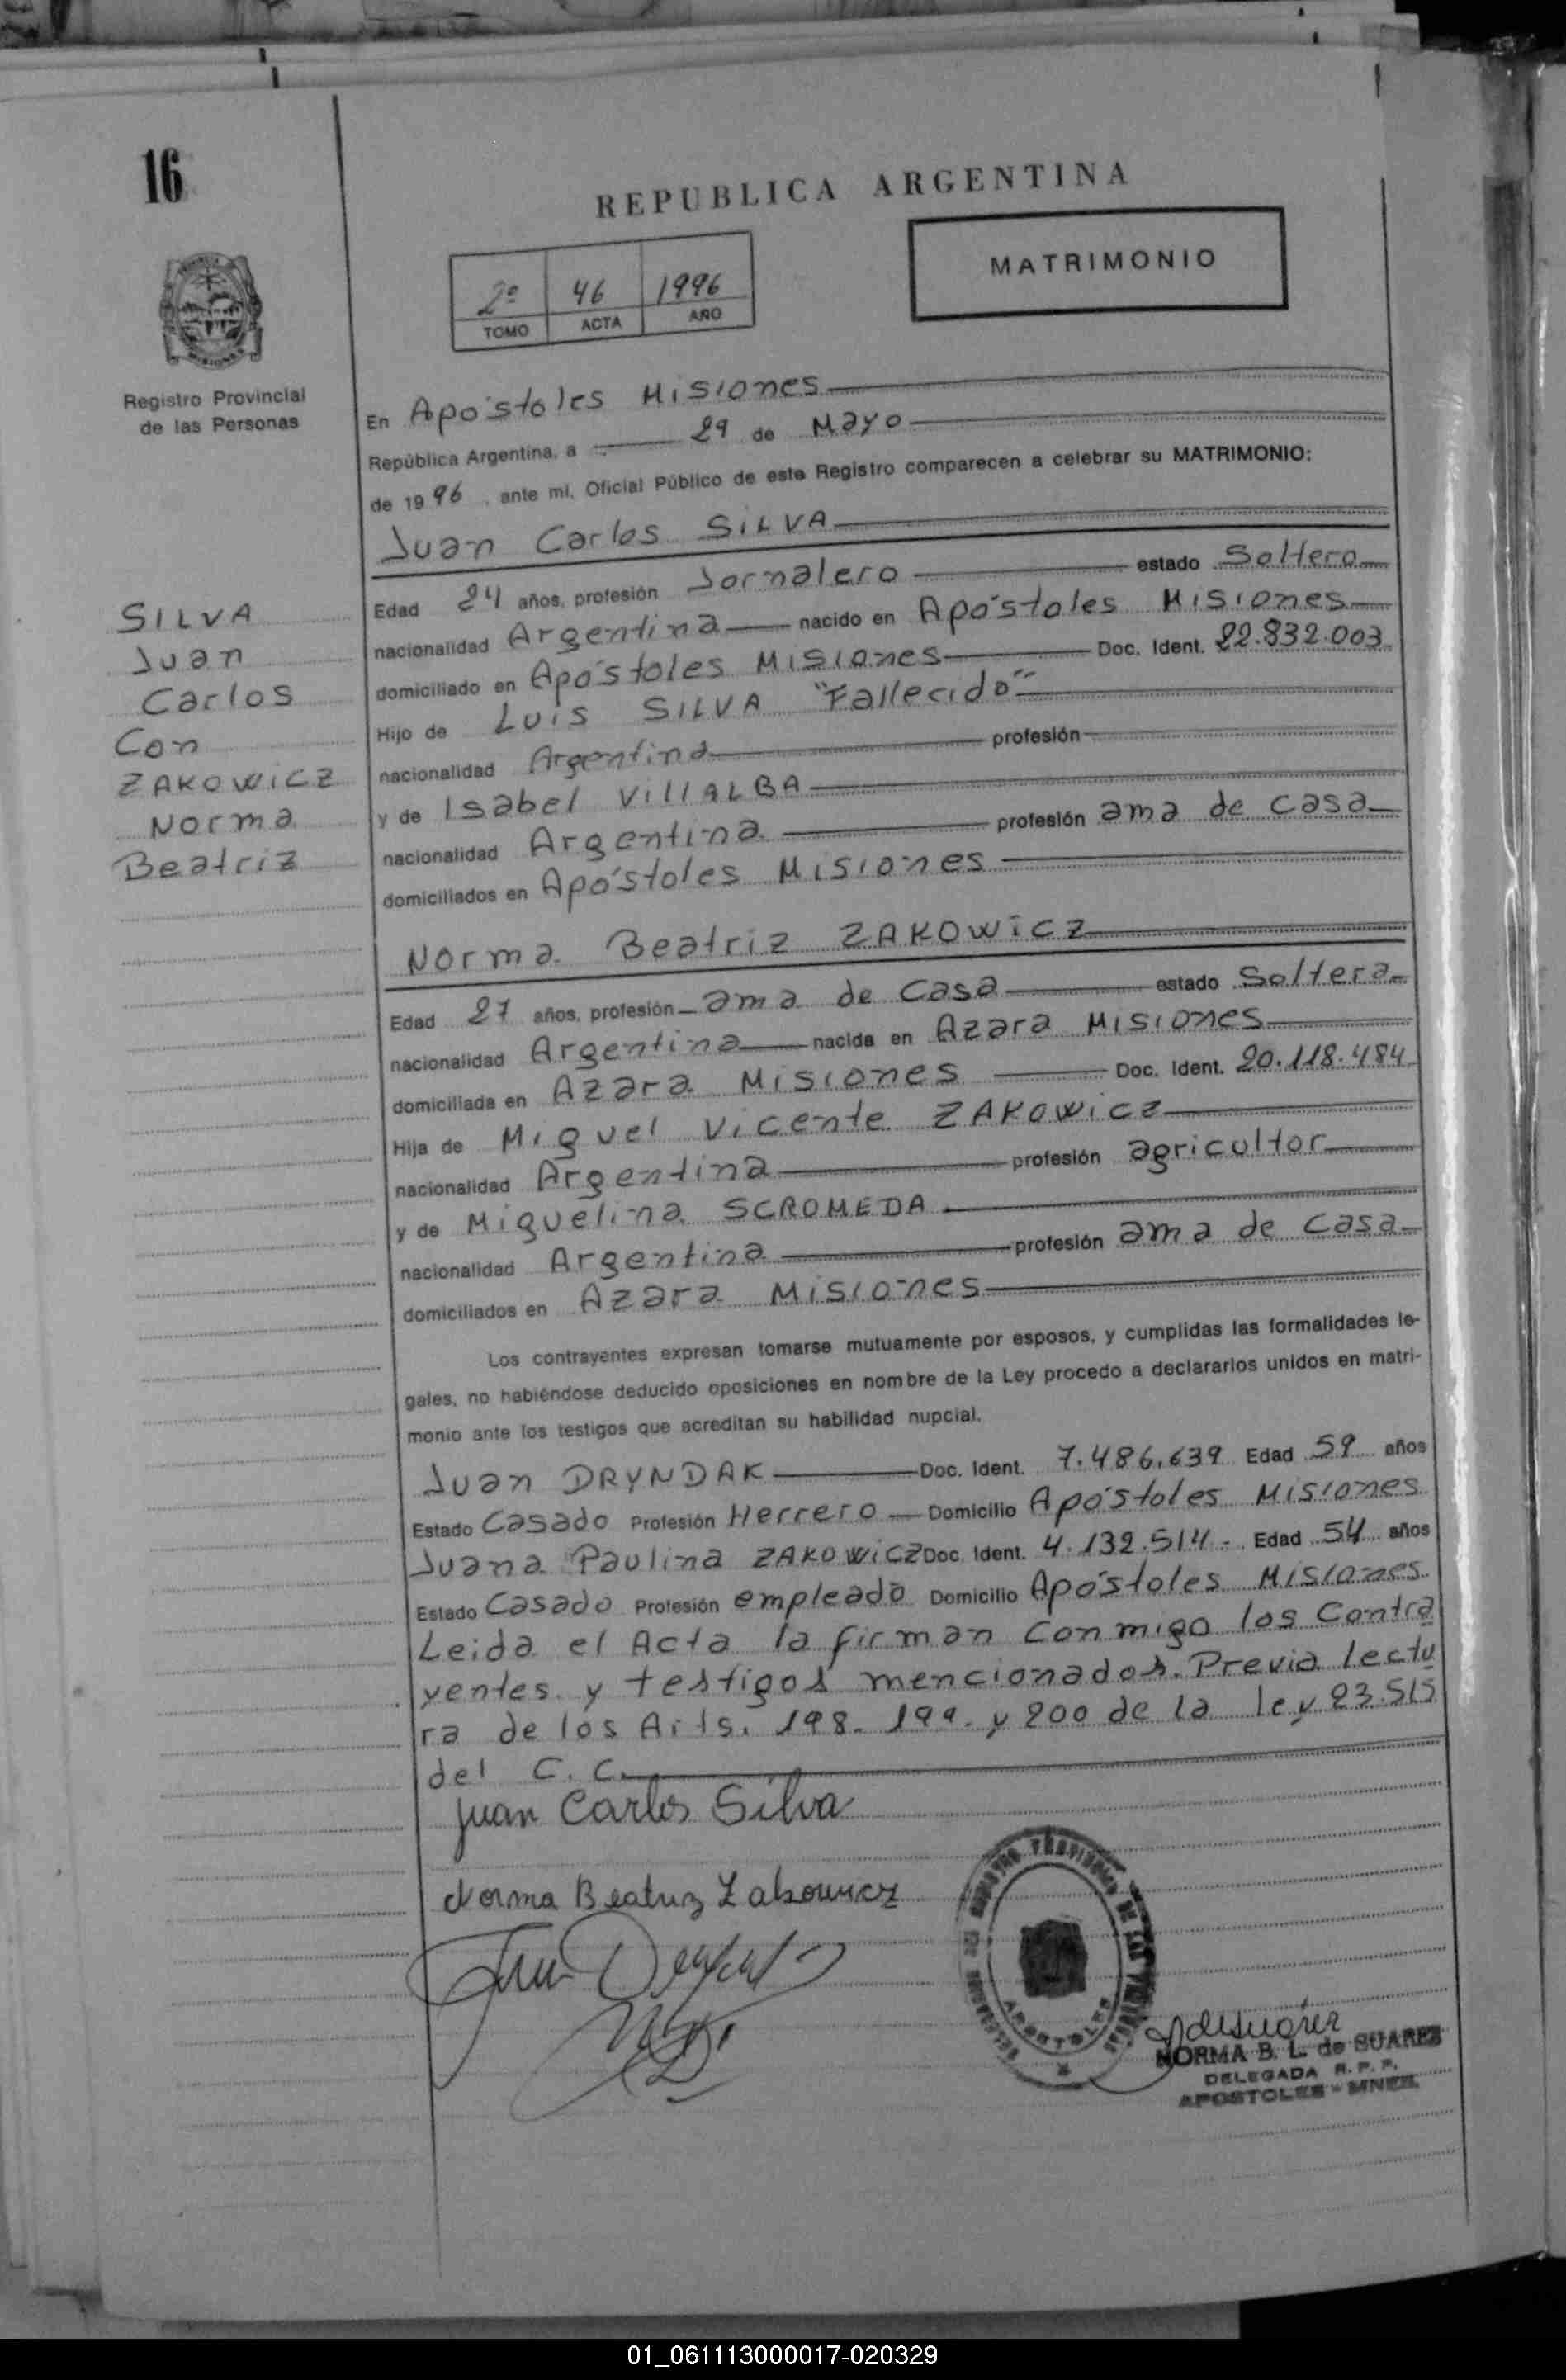 16
REPUBLICA ARGENTINA
MATRIMONIO
2º 46 1996
TOMO ACTA AÑO
Registro Provincial
de las Personas
En Apóstoles Misiones
República Argentina, a 29 de Mayo
de 1996, ante mi, Oficial Público de este Registro comparecen a celebrar su MATRIMONIO:
Juan Carlos SILVA
Edad 24 años, profesión Jornalero estado Soltero
nacionalidad Argentina nacido en Apóstoles Misiones
domiciliado en Apóstoles Misiones Doc. Ident. 22.832.003
Hijo de Luis SILVA "Fallecido"
nacionalidad Argentina profesión
y de Isabel VillALBA
nacionalidad Argentina profesión ama de casa
domiciliados en Apóstoles Misiones
SILVA
Juan
Carlos
Con
ZAKOWICZ
Norma
Beatriz
Norma Beatriz ZAKOWICZ
Edad 27 años, profesión ama de casa estado Soltera
nacionalidad Argentina nacida en Azara Misiones
domiciliada en Azara Misiones Doc. Ident. 20.118.484
Hija de Miguel Vicente ZAKOWICZ
nacionalidad Argentina profesión agricultor
y de Miguelina SCROMEDA
nacionalidad Argentina profesión ama de casa
domiciliados en Azara Misiones
Los contrayentes expresan tomarse mutuamente por esposos, y cumplidas las formalidades le-
gales, no habiéndose deducido oposiciones en nombre de la Ley procedo a declararlos unidos en matri-
monio ante los testigos que acreditan su habilidad nupcial.
Juan DRYNDAK Doc. Ident. 7.486.639 Edad 59 años
Estado Casado Profesión Herrero Domicilio Apóstoles Misiones
Juana Paulina ZAKOWICZ Doc. Ident. 4.132.514 - Edad 54 años
Estado Casado Profesión empleado Domicilio Apóstoles Misiones
Leida el Acta la firman conmigo los Contra
yentes y testigos mencionados. Previa lectu
ra de los Arts. 198. 199. y 200 de la ley 23.515
del C. C.
Juan Carlos Silva
Norma Beatriz Zakowicz
NORMA B. L. de SUAREZ
DELEGADA R. P. P.
APOSTOLES - MNES.
01_061113000017-020329